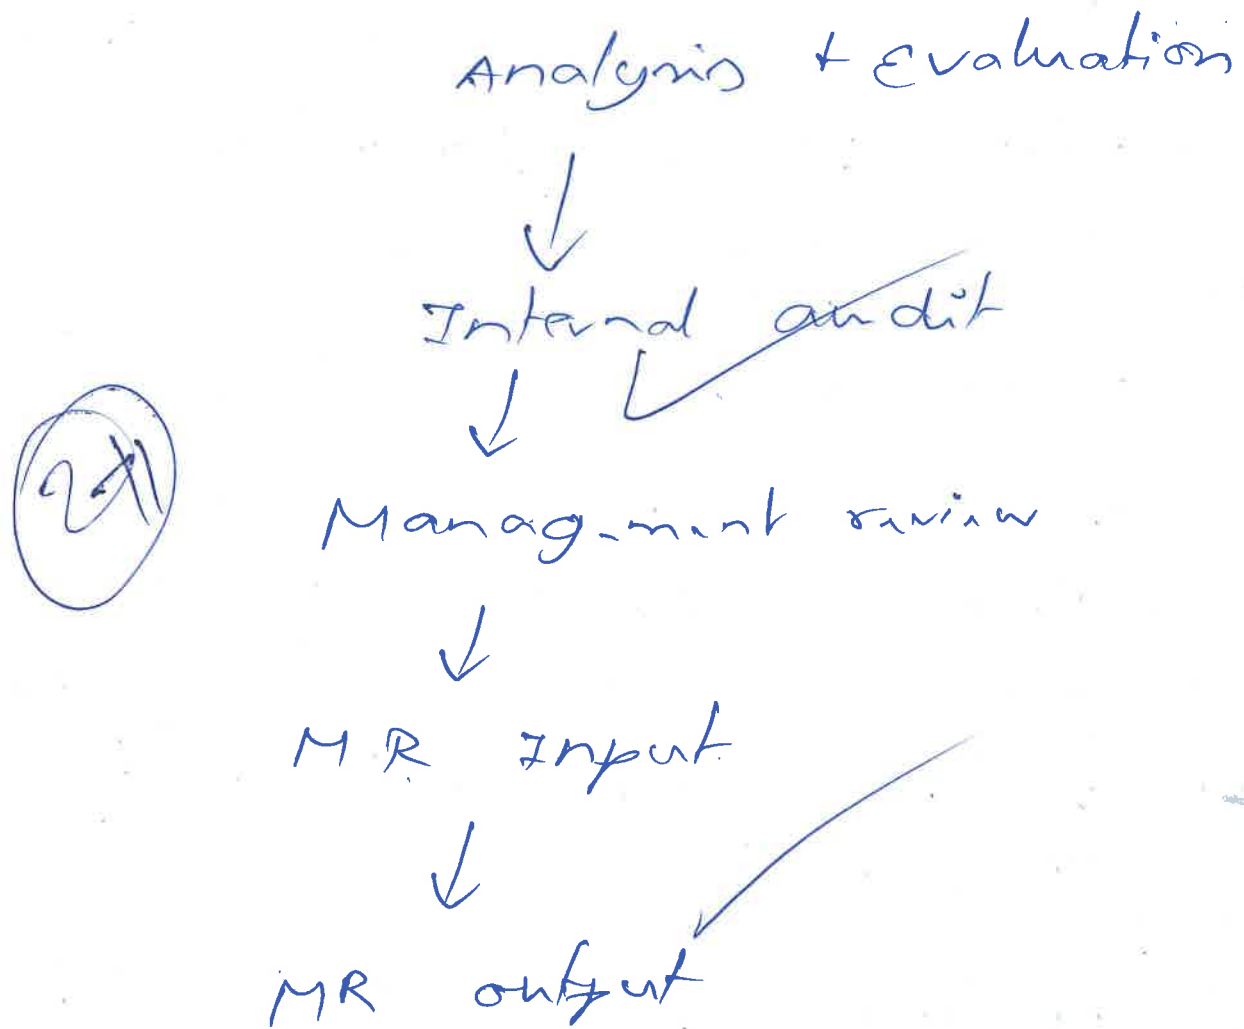 Analysis + Evaluation
Internal audit
Management review
MR Input
MR output